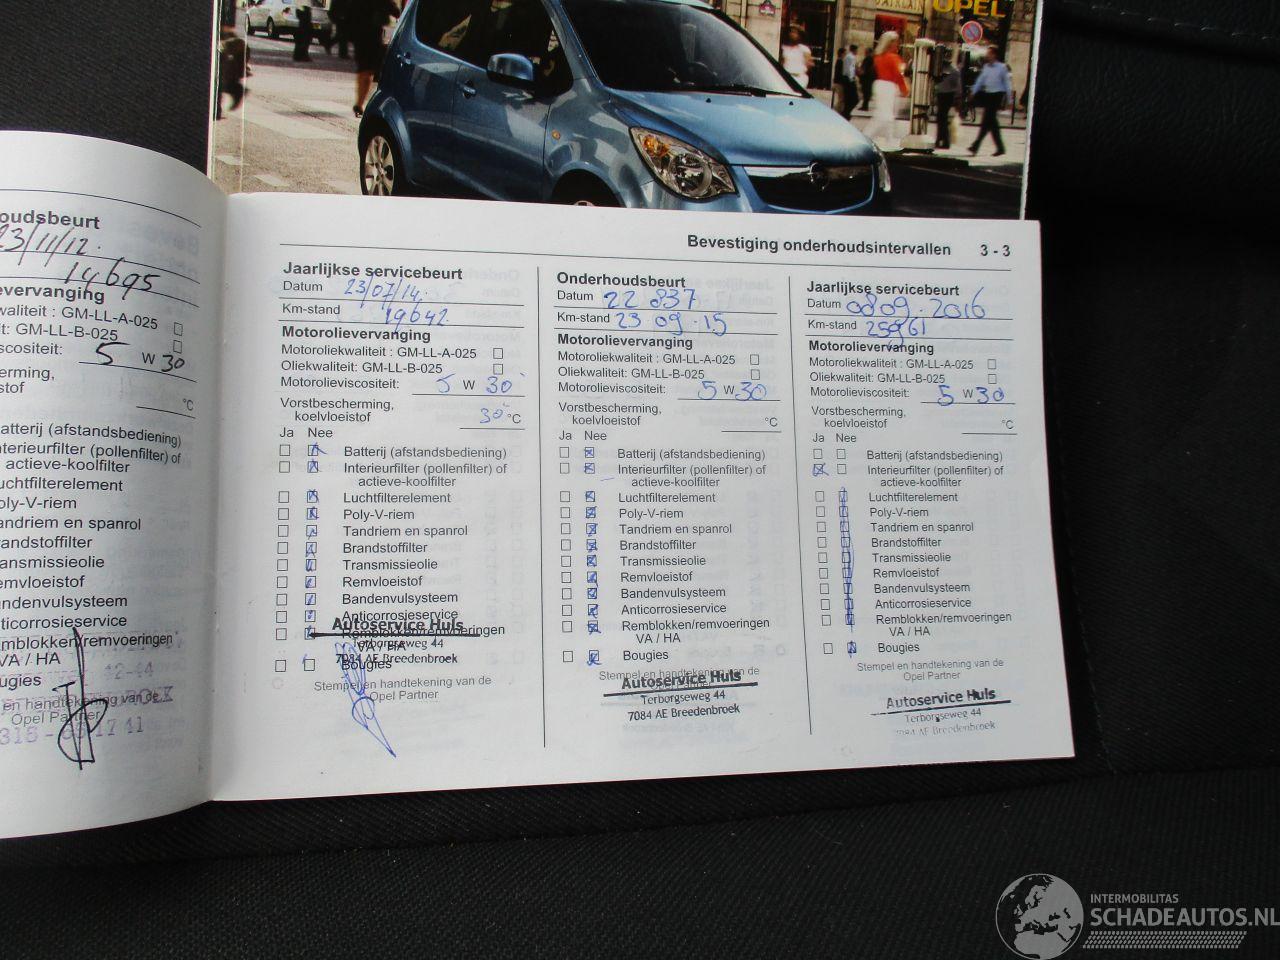 OPEL
Bevestiging onderhoudsintervallen 3 - 3
oudsbeurt
23/11/12.
14695
evervanging
waliteit : GM-LL-A-025
t: GM-LL-B-025
iscositeit: 5 W 30
cherming,
stof
°C
atterij (afstandsbediening)
nterieurfilter (pollenfilter) of
actieve-koolfilter
uchtfilterelement
oly-V-riem
andriem en spanrol
randstoffilter
ransmissieolie
emvloeistof
andenvulsysteem
nticorrosieservice
emblokken/remvoeringen
VA / HA
ugies
en handtekening van de
Opel Partner
Jaarlijkse servicebeurt
Datum 23/07/14.
Km-stand 19642
Motorolievervanging
Motoroliekwaliteit : GM-LL-A-025
Oliekwaliteit: GM-LL-B-025
Motorolieviscositeit: 5 W 30
Vorstbescherming,
koelvloeistof 30 °C
Ja Nee
Batterij (afstandsbediening)
Interieurfilter (pollenfilter) of
actieve-koolfilter
Luchtfilterelement
Poly-V-riem
Tandriem en spanrol
Brandstoffilter
Transmissieolie
Remvloeistof
Bandenvulsysteem
Anticorrosieservice
Autoservice Huls
Remblokken/remvoeringen
VA / HA
Terborgseweg 44
7084 AE Breedenbroek
Bougies
Stempel en handtekening van de
Opel Partner
Onderhoudsbeurt
Datum 22 837
Km-stand 23 09 - 15
Motorolievervanging
Motoroliekwaliteit : GM-LL-A-025
Oliekwaliteit: GM-LL-B-025
Motorolieviscositeit: 5 W 30
Vorstbescherming,
koelvloeistof
°C
Ja Nee
Batterij (afstandsbediening)
Interieurfilter (pollenfilter) of
actieve-koolfilter
Luchtfilterelement
Poly-V-riem
Tandriem en spanrol
Brandstoffilter
Transmissieolie
Remvloeistof
Bandenvulsysteem
Anticorrosieservice
Remblokken/remvoeringen
VA / HA
Bougies
Stempel en handtekening van de
Autoservice Huls
Terborgseweg 44
7084 AE Breedenbroek
Jaarlijkse servicebeurt
Datum 0809 - 2016
Km-stand 25961
Motorolievervanging
Motoroliekwaliteit : GM-LL-A-025
Oliekwaliteit: GM-LL-B-025
Motorolieviscositeit: 5 W 30
Vorstbescherming,
koelvloeistof
°C
Ja Nee
Batterij (afstandsbediening)
Interieurfilter (pollenfilter) of
actieve-koolfilter
Luchtfilterelement
Poly-V-riem
Tandriem en spanrol
Brandstoffilter
Transmissieolie
Remvloeistof
Bandenvulsysteem
Anticorrosieservice
Remblokken/remvoeringen
VA / HA
Bougies
Stempel en handtekening van de
Opel Partner
Autoservice Huls
Terborgseweg 44
7084 AE Breedenbroek
INTERMOBILITAS
SCHADEAUTOS.NL